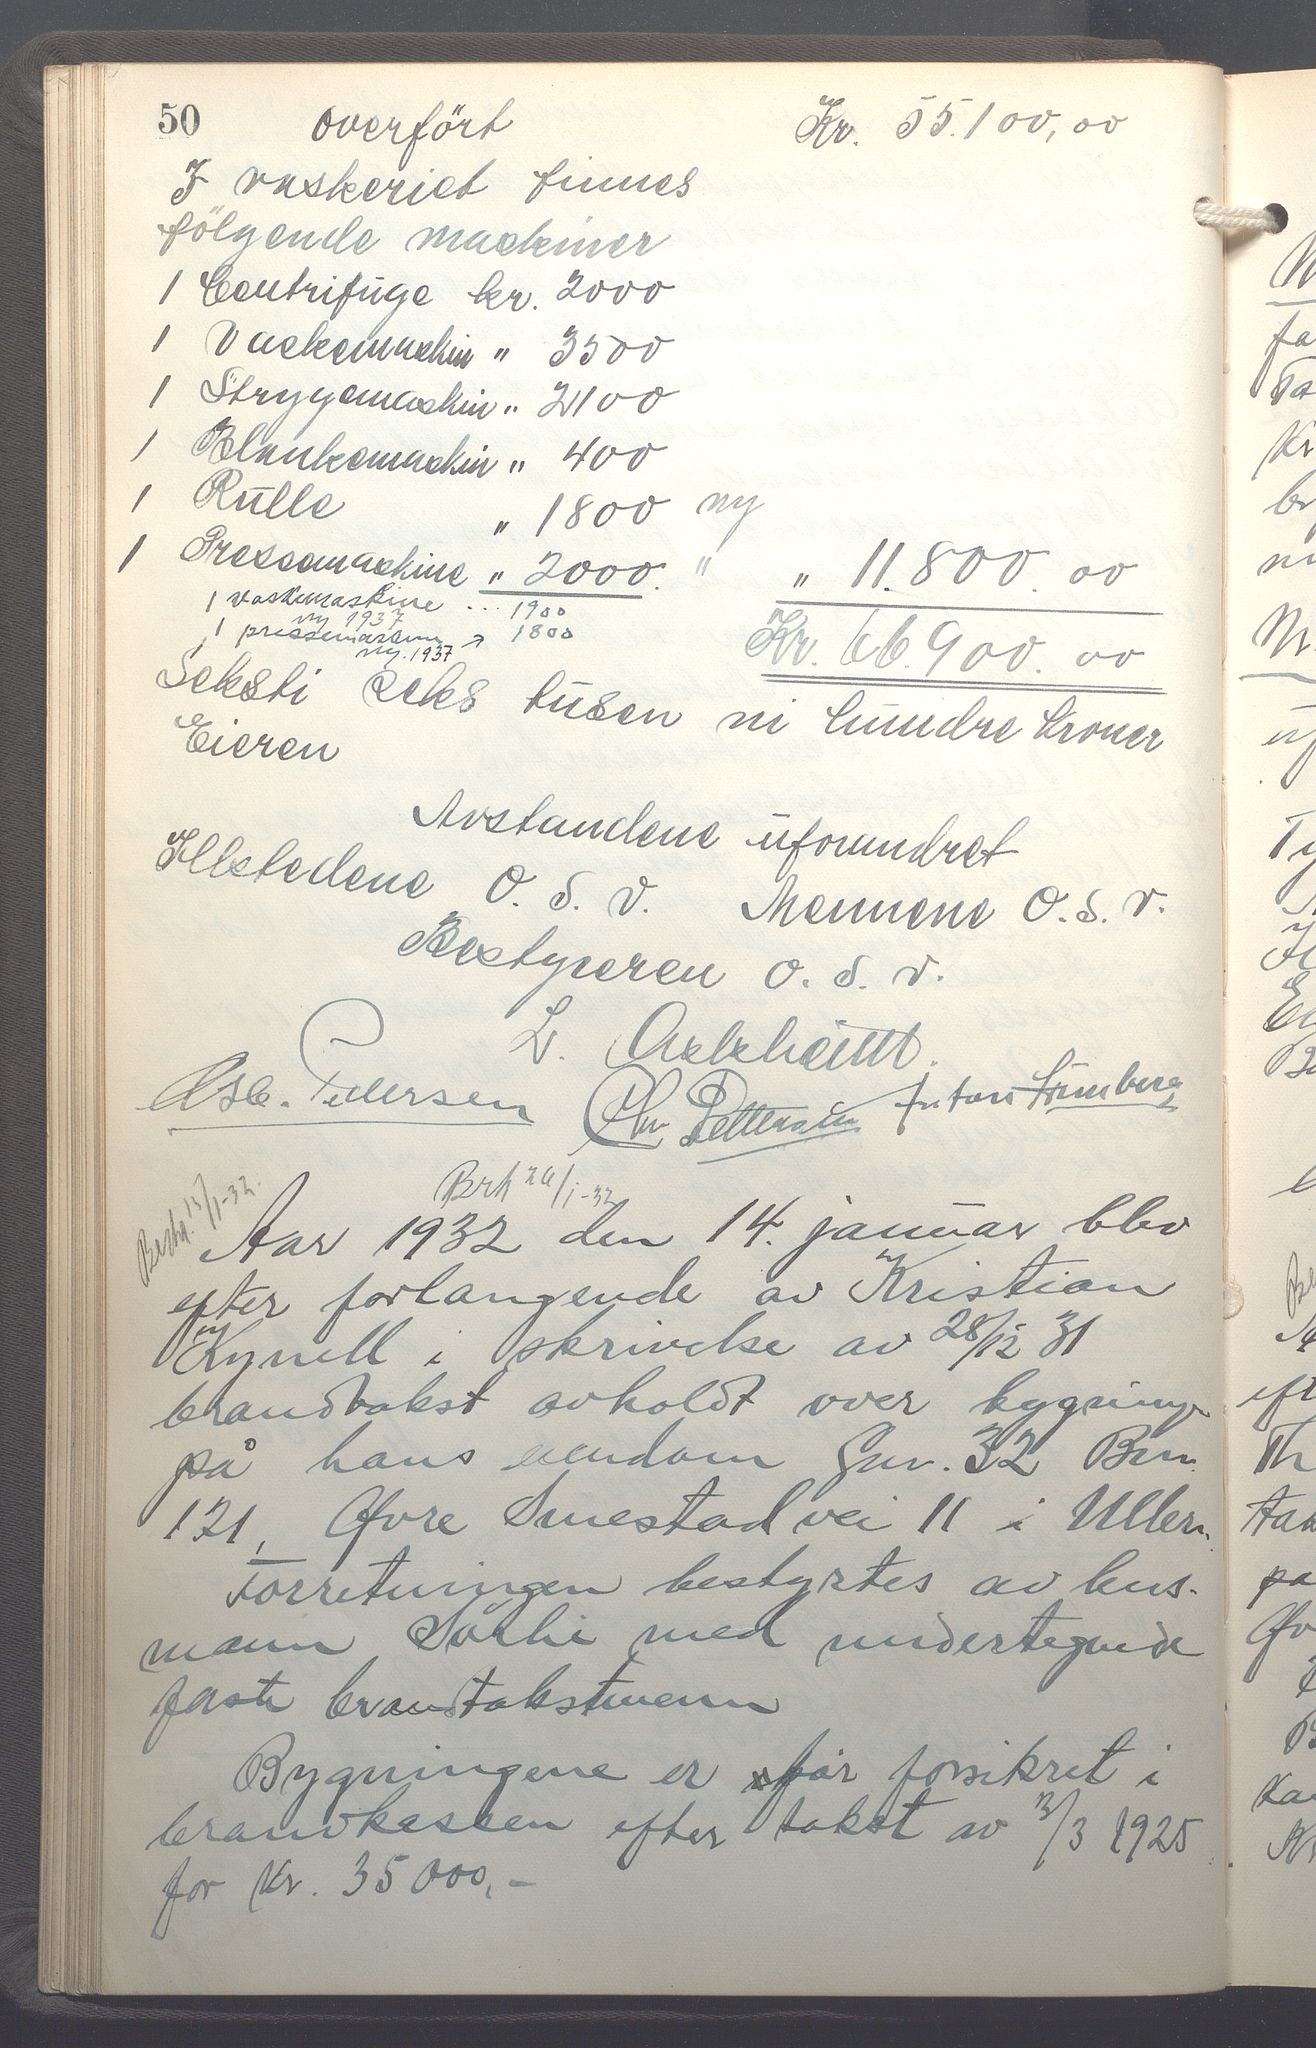 50 overført Kr. 55.100,00
I vaskeriet finnes
følgende maskiner
1 Centrifuge kr. 2000
1 Vaskemaskin " 3500
1 Strygemaskin " 2100
1 Blankemaskin " 400
1 Rulle " 1800 ny
1 Pressemaskine " 2000. " " 11.800.00
1 vaskemaskine ... 1900
ny 1937
1 pressemaskin " 1800
ny. 1937
Kr. 66.900.00
Seksti seks tusen ni hundre kroner
Eieren
Avstandene uforandret
Ildstedene O.S.V. Mennene O.S.V.
Bestyreren O.S.V.
Asb. Pedersen Chr Pettersen Anton
Brh 26/1-32
15/1-32.
Aar 1932 den 14. januar blev
efter forlangende av Kristian
Kynell i skrivelse av 28/12 31
brandtakst avholdt over bygninger
på hans eiendom Gnr. 32 Bnr.
121, Øvre Smestad vei 11 i Ullern.
Forretningen bestyrtes av lens-
mann Sørlie med undertegnede
faste brandtakstmenn
Bygningene er før forsikret i
brandkassen efter takst av /3 1925
for Kr. 35000,-